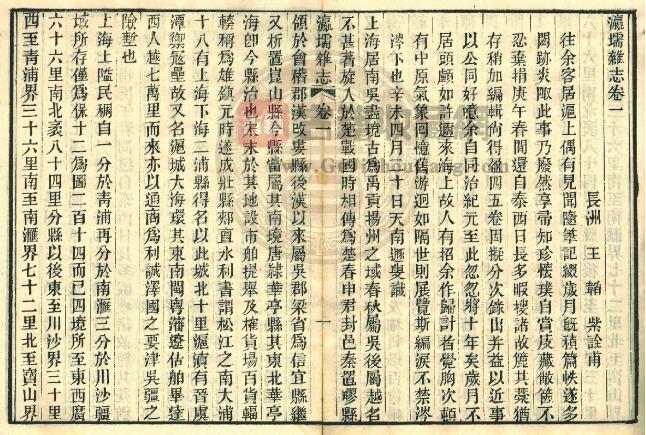 瀛壖雜志卷一
長洲 王韜 紫詮甫
往余客居滬上偶有見聞隨筆記綴歲月旣積篇帙遂多
閱跡炎陬此事乃廢然享帚知珍懷璞自賞庋藏敝篋不
忍棄捐庚午春間還自泰西日長多暇搜諸故簏其藁猶
存稍加編輯尚得盈四五卷因擬分次錄出并益以近事
以公同好噫余自同治紀元至此忽忽將十年矣歲月不
居頭顱如許邇來海上故人有招余作歸計者覺胸次頓
有中原氣象回憶舊游迥如隔世則展覽斯編淚不禁涔
涔下也辛未四月二十日天南遯叟識
上海居南吳盡境古爲禹貢揚州之域春秋屬吳後屬越名
不甚著旋入於楚戰國時相傳爲楚春申君封邑秦置疁縣
瀛壖雜志 卷一 一
領於會稽郡漢改婁縣後漢以來屬吳郡梁省爲信宜縣繼
又析置崑山縣今縣當屬其南境唐隸華亭縣其東北華亭
海卽今縣治也宋末於其地設市舶提舉及榷貨場百貨輻
轃稱爲雄鎮元時遂成壯縣郟亶水利書謂松江之南大浦
十八有上海下海二浦縣得名以此城北十里滬瀆有晉虞
潭禦寇壘故又名滬城大海環其東南閩粵瀋遼估舶畢達
西人越七萬里而來亦以通商爲利誠澤國之要津吳疆之
險塹也
上海上隘民稠自一分於青浦再分於南滙三分於川沙疆
域所存僅爲保十二爲圖二百十四而已四境所至東西廣
六十六里南北袤八十四里分縣以後東至川沙界三十里
西至青浦界三十六里南至南滙界七十二里北至寶山界